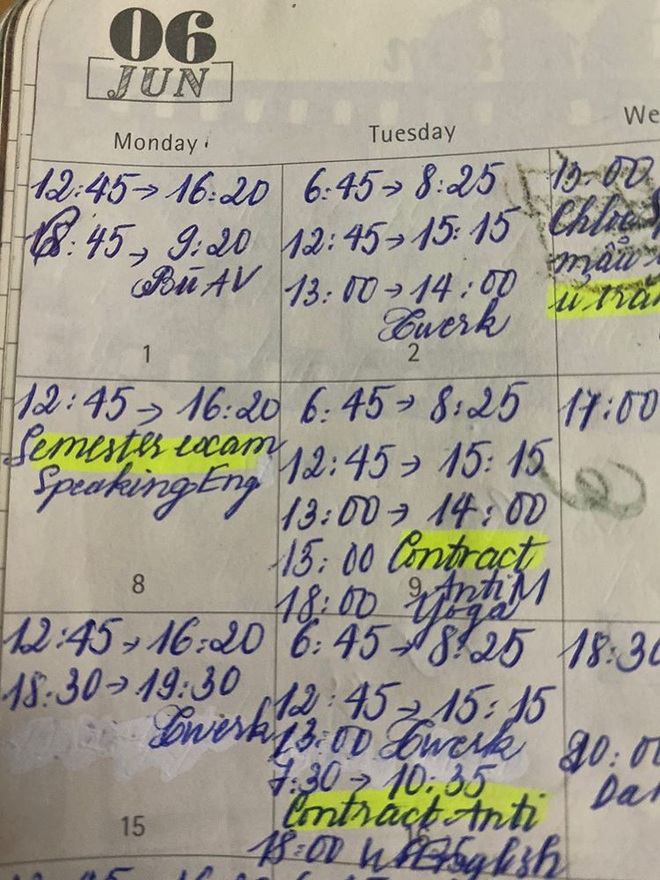 06
JUN
Monday
Tuesday
We
12:45 → 16:20
8:45 → 9:20
Bù AV
1
6:45 → 8:25
12:45 → 15:15
13:00 → 14:00
Twerk
2
mẫu
12:45 → 16:20
Semester exam
Speaking Eng
8
6:45 → 8:25
12:45 → 15:15
13:00 → 14:00
15:00 Contract
Anti M
9
18:00 Yoga
17:00
12:45 → 16:20
18:30 → 19:30
Twerk
15
6:45 → 8:25
12:45 → 15:15
13:00 Twerk
7:30 → 10:35
Contract Anti
18:00 English
18:30
20:00
Dan